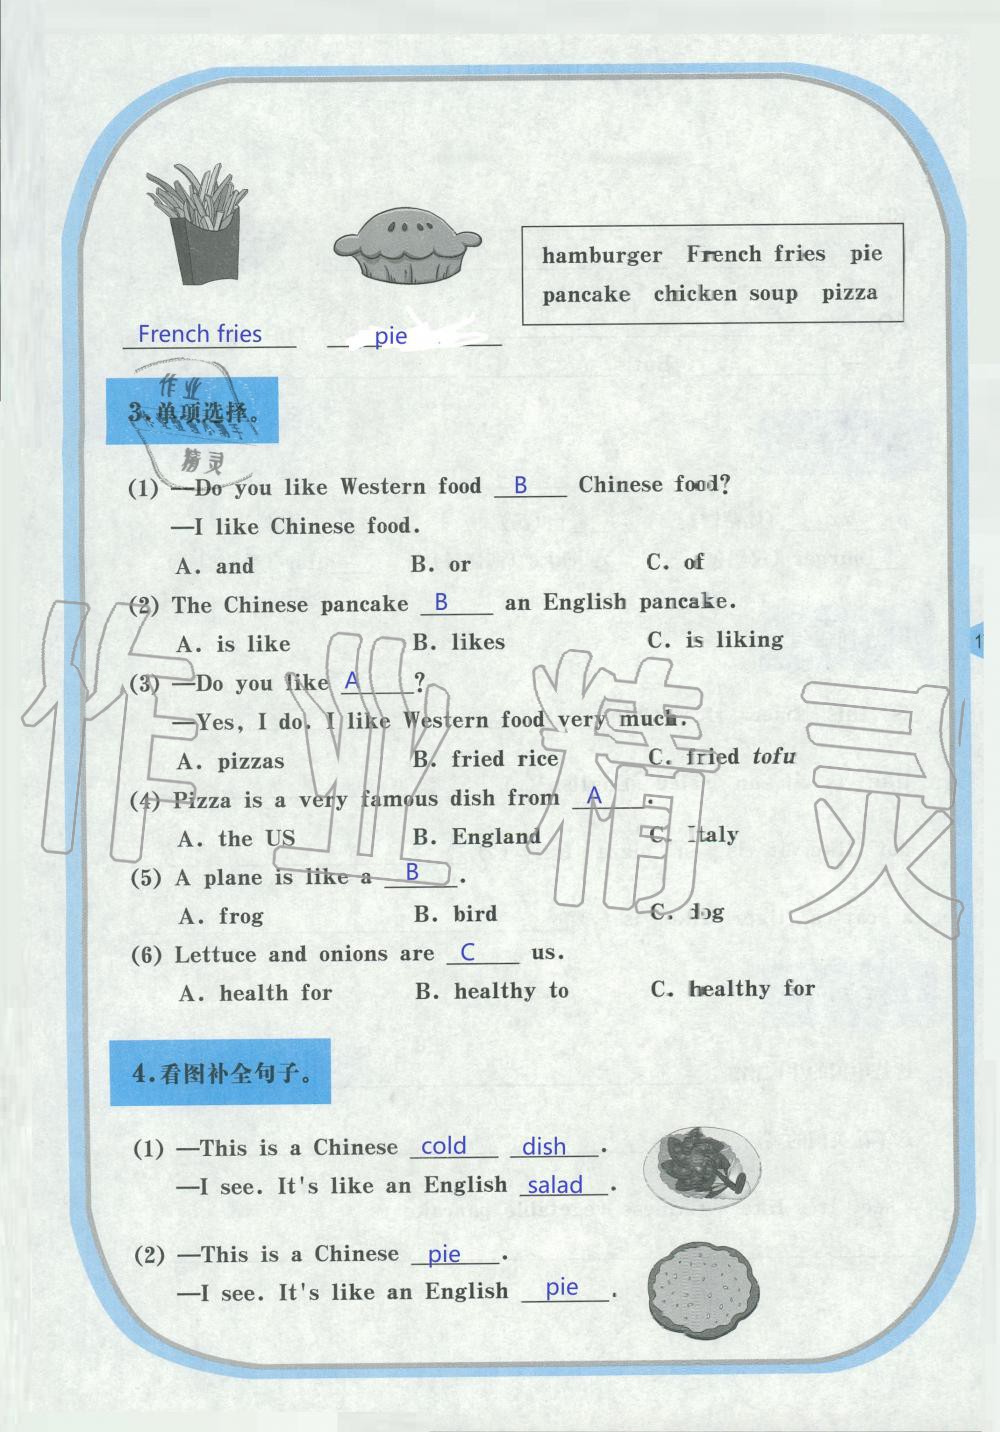 hamburger French fries pie
pancake chicken soup pizza
French fries pie
3.单项选择。
作业
精灵
(1) —Do you like Western food B Chinese food?
—I like Chinese food.
A. and B. or C. of
(2) The Chinese pancake B an English pancake.
A. is like B. likes C. is liking
(3) —Do you like A ?
—Yes, I do. I like Western food very much.
A. pizzas B. fried rice C. fried tofu
(4) Pizza is a very famous dish from A .
A. the US B. England C. Italy
(5) A plane is like a B .
A. frog B. bird C. dog
(6) Lettuce and onions are C us.
A. health for B. healthy to C. healthy for
作业精灵
4.看图补全句子。
(1) —This is a Chinese cold dish .
—I see. It's like an English salad .
(2) —This is a Chinese pie .
—I see. It's like an English pie .